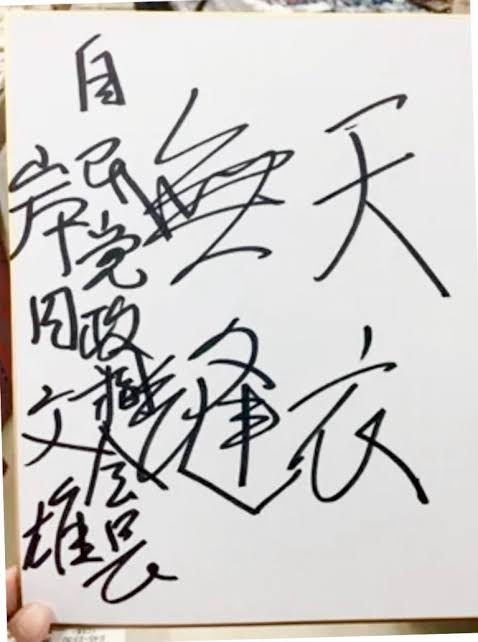 天衣
無縫
自民党政調会長
岸田文雄